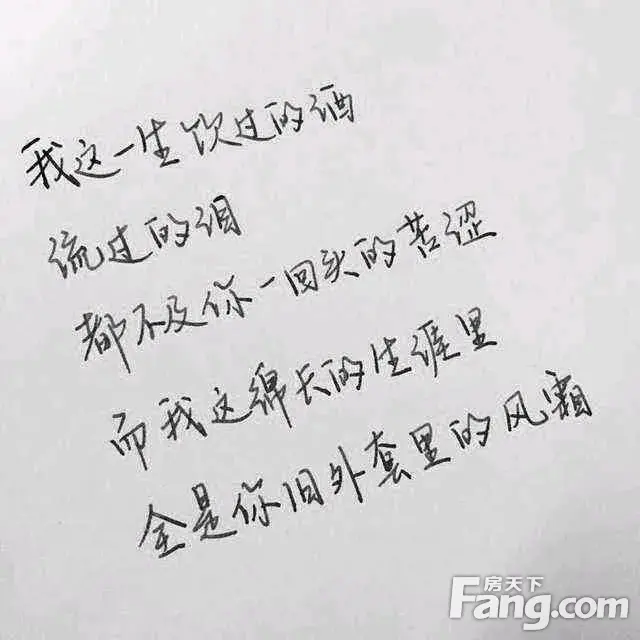 我这一生饮过的酒
流过的泪
都不及你一回头的苦涩
而我这绵长的生涯里
全是你旧外套里的风霜
房天下
Fang.com